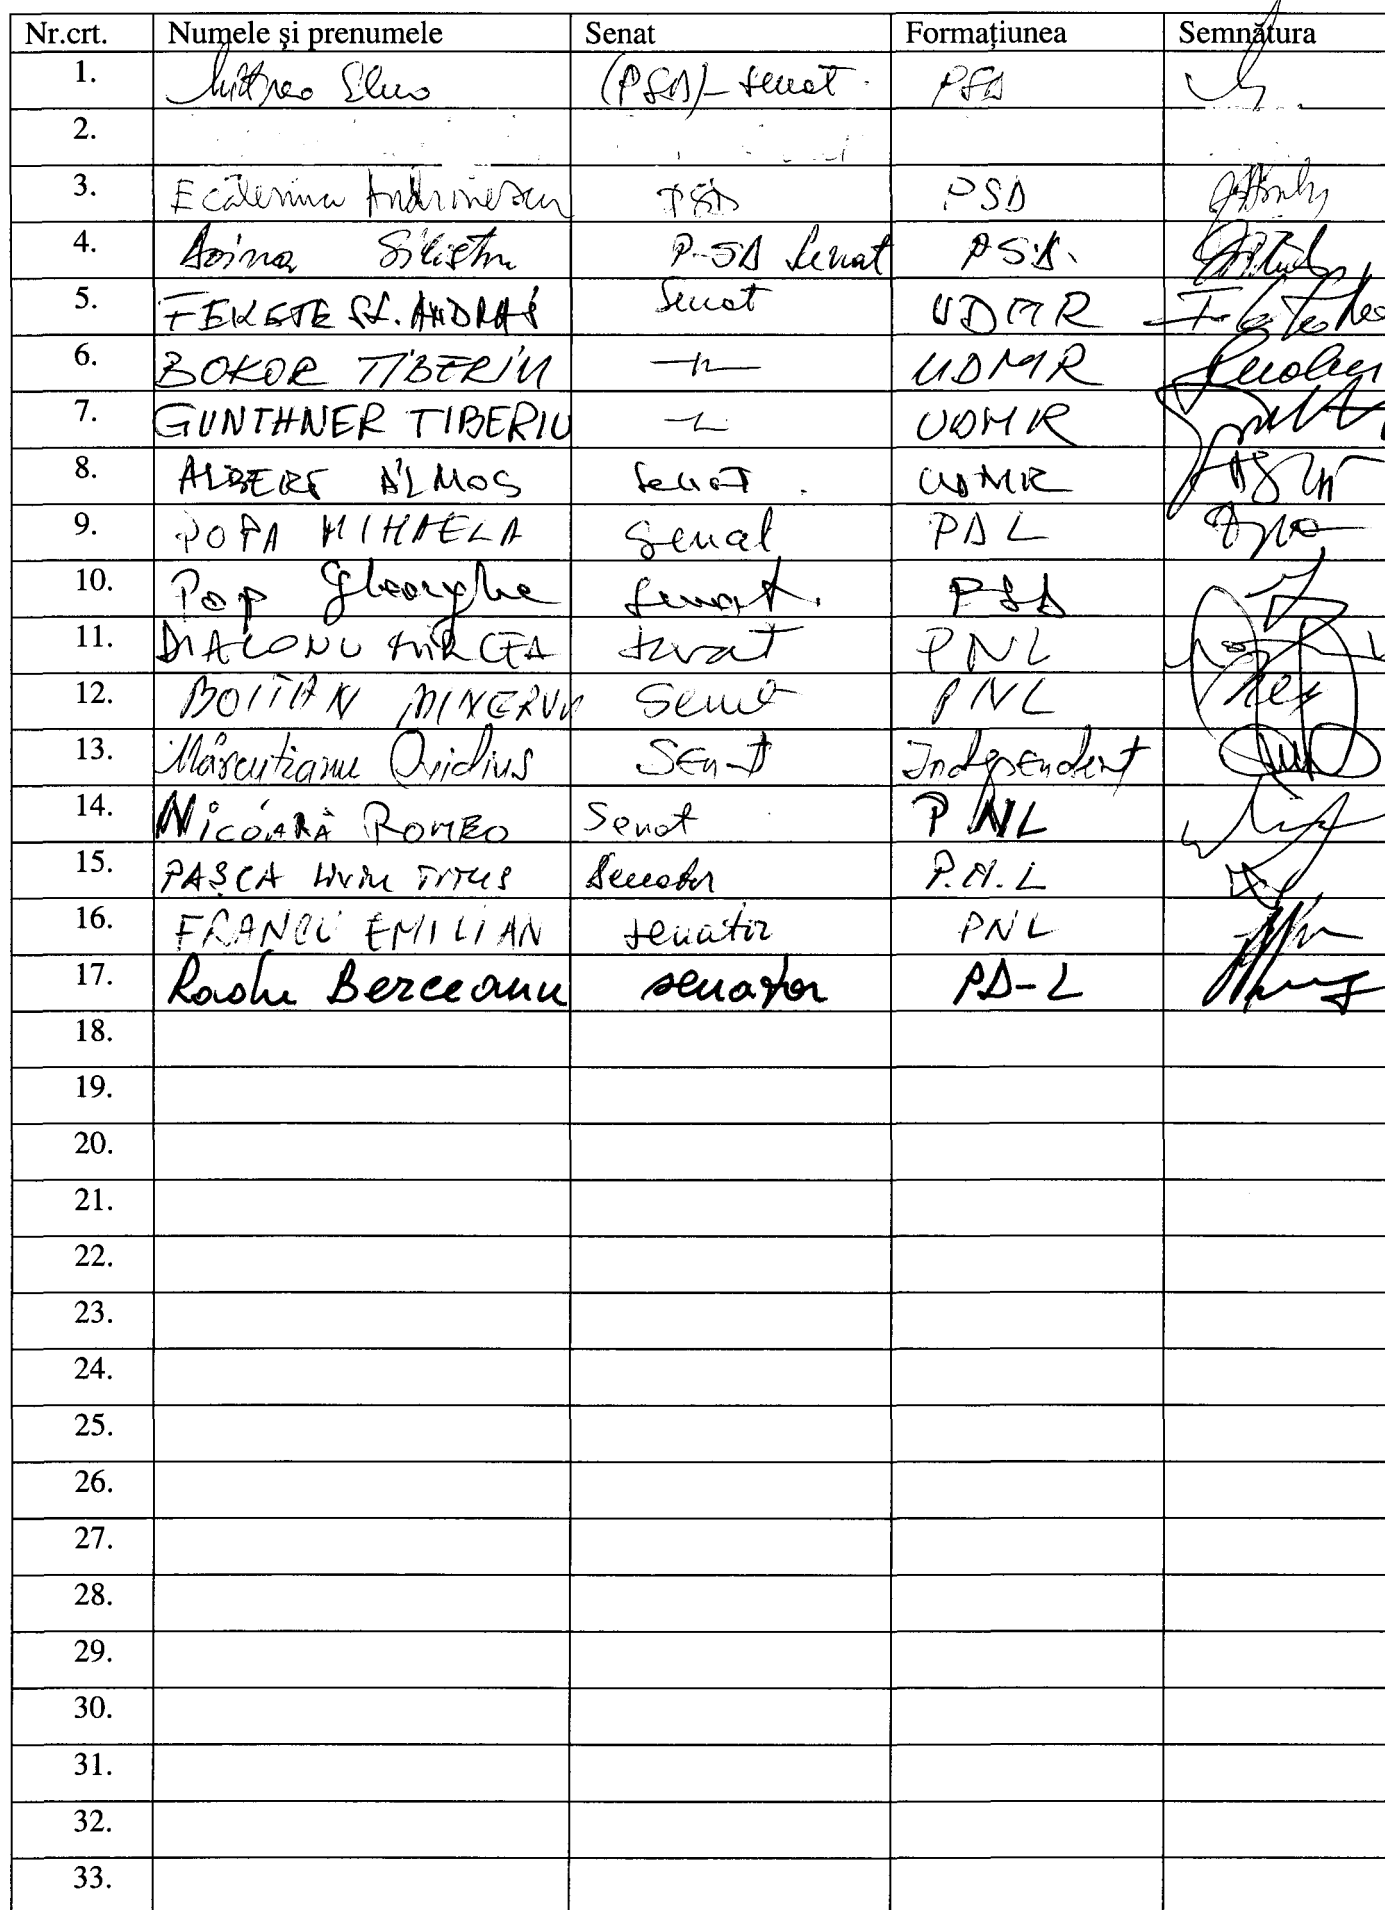 Nr.crt. Numele și prenumele Senat Formațiunea Semnătura
1. (PSD) - Senat PSD
2.
3. Ecaterina Andronescu PSD PSD
4. Doina Silistru PSD Senat PSD.
5. FEKETE SZ. ANDRÁS Senat UDMR
6. BOKOR TIBERIU —"— UDMR
7. GUNTHNER TIBERIU —"— UDMR
8. ALBERT ÁLMOS Senat UDMR
9. POPA MIHAELA Senat PDL
10. Pop Gheorghe Senat. PSD
11. DIACONU MIRCEA Senat PNL
12. BOITAN MINERVA Senat PNL
13. Mărcuțianu Ovidius Senat Independent
14. NICOARĂ ROMEO Senat PNL
15. PAȘCA LIVIU TITUS Senator P.N.L
16. FRÂNCU EMILIAN senator PNL
17. Radu Berceanu senator PD-L
18.
19.
20.
21.
22.
23.
24.
25.
26.
27.
28.
29.
30.
31.
32.
33.